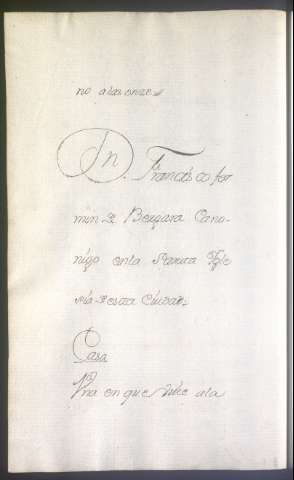 no a las onze
Dn. Francisco fer
min de Bergara Cano-
nigo en la Santa Ygle
sia de esta Ciudad
Casa
Vna en que Viue a la